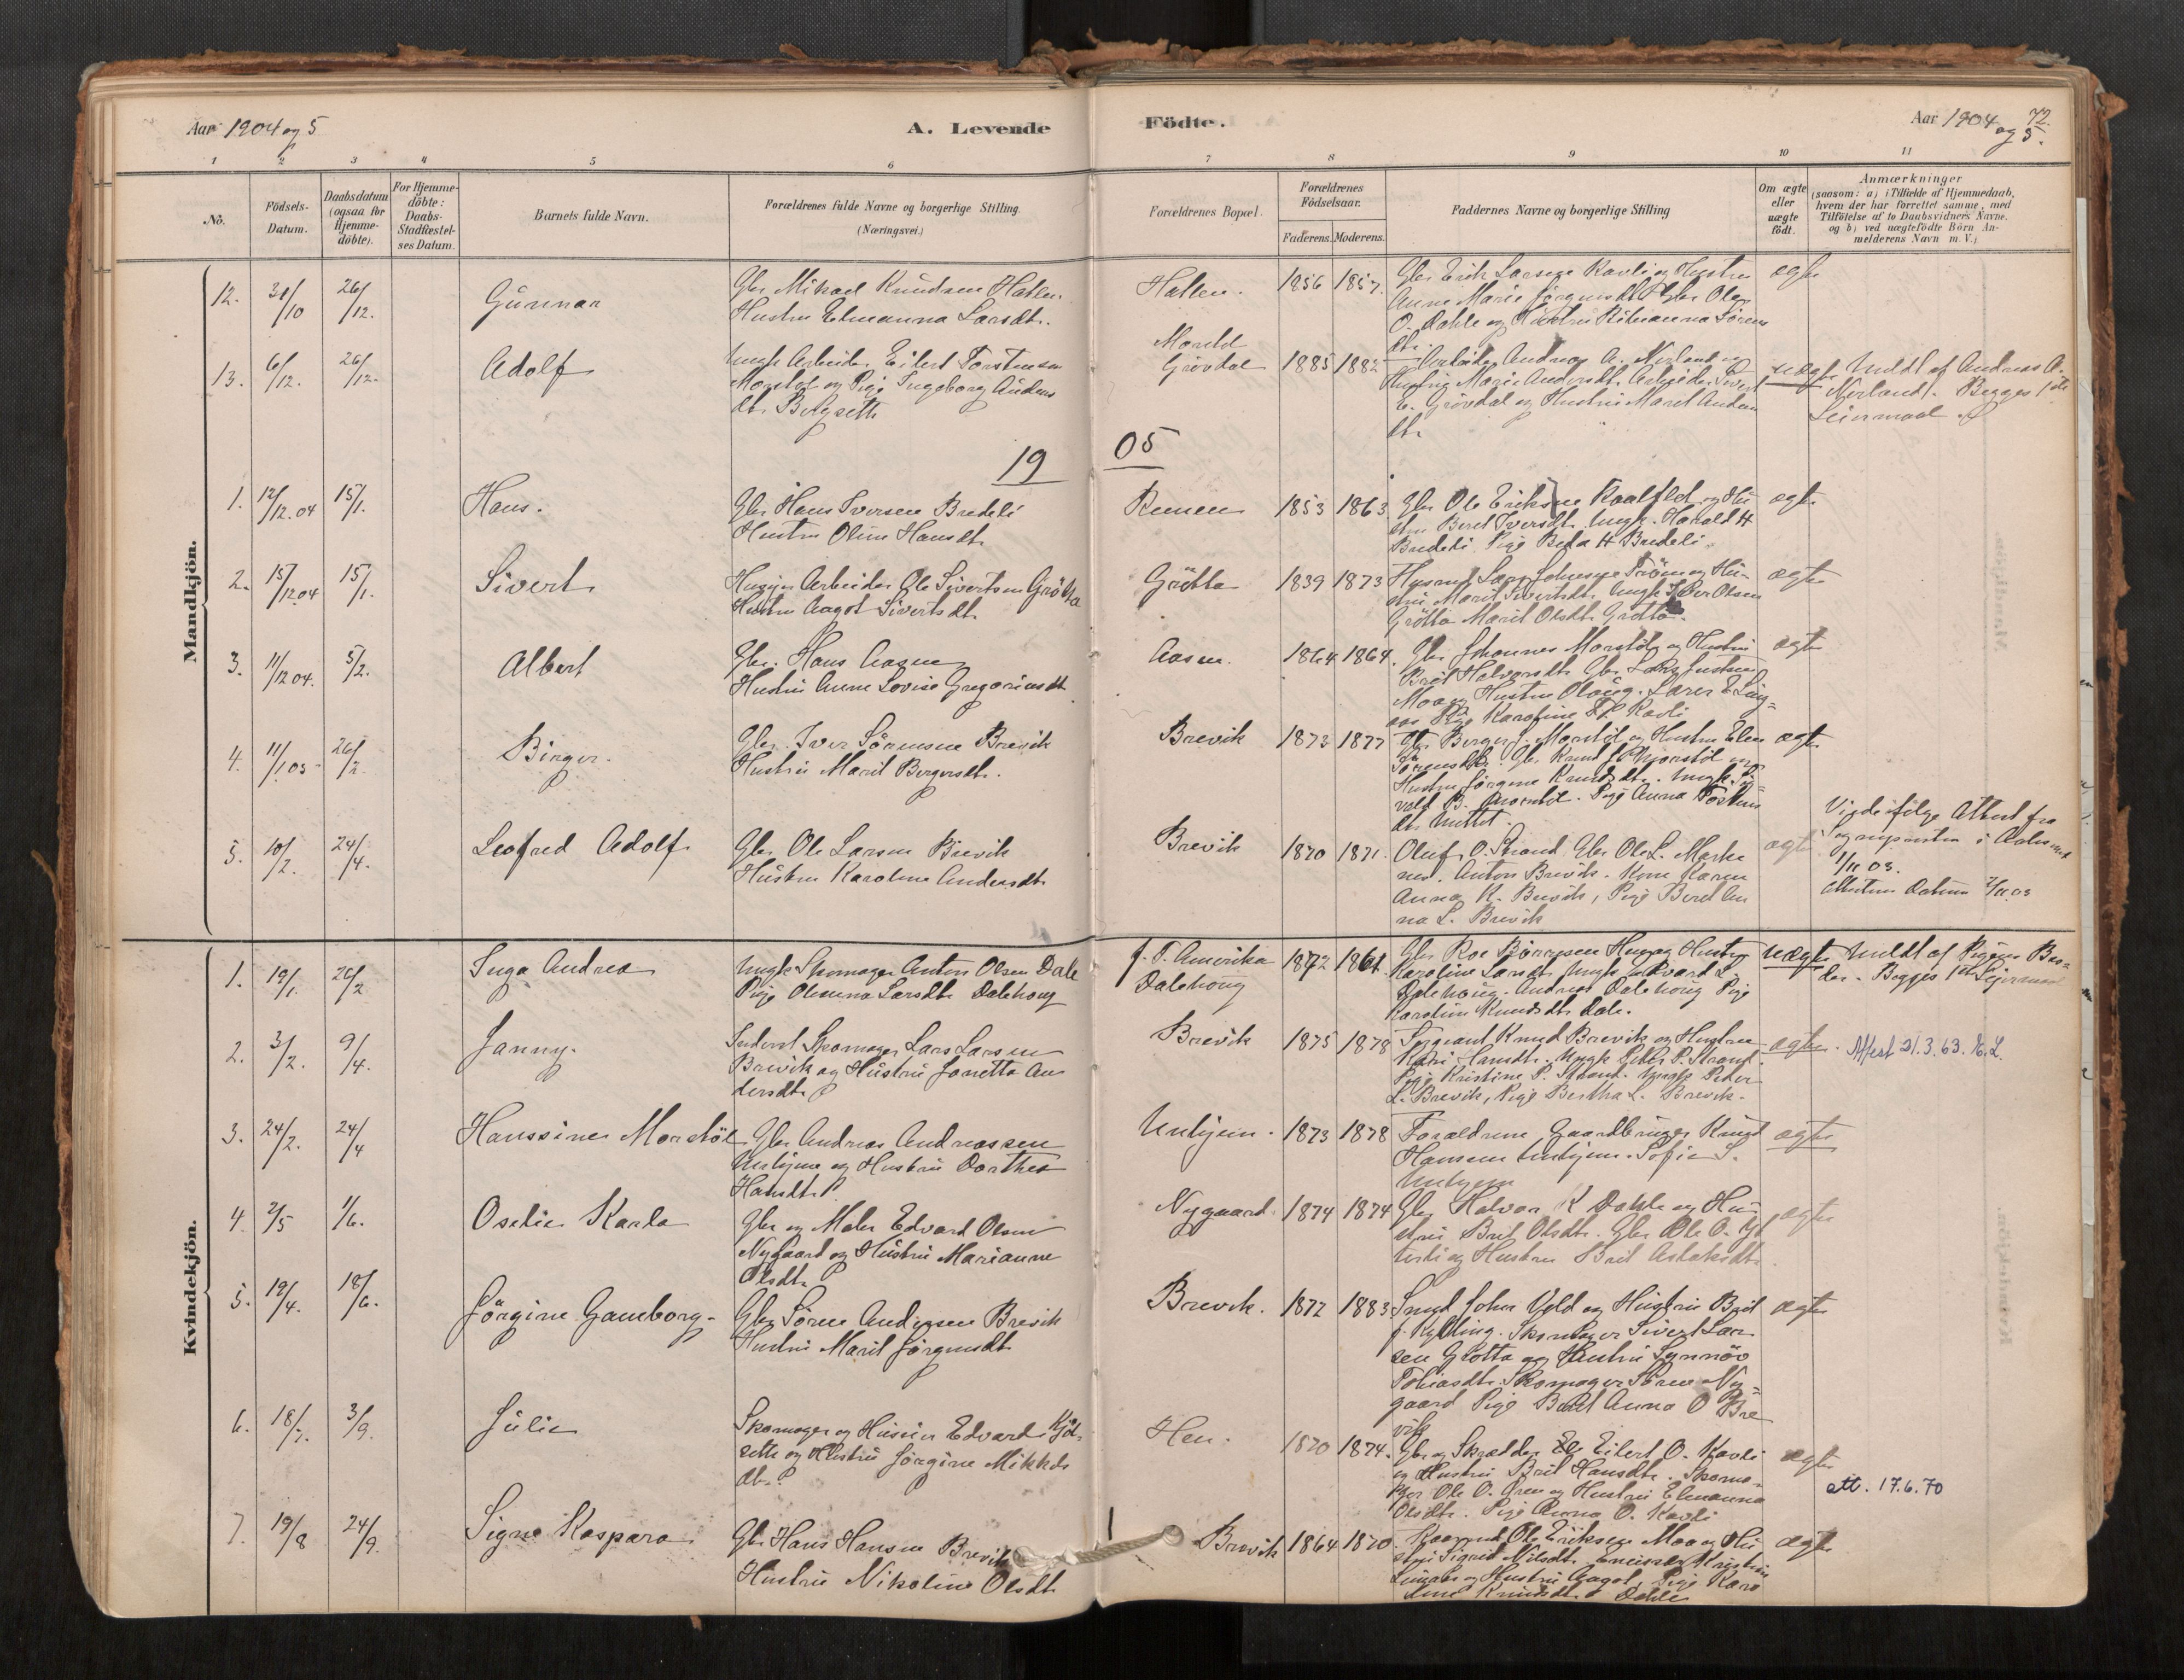 Aar 1904 og 5
A. Levende
Födte.
Aar 1904 og 5.
72.
1 2 3 4 5 6 7 8 9 10 11
No.
Födsels-
Datum.
Daabsdatum
(ogsaa for
Hjemme-
döbte).
For Hjemme-
döbte:
Daabs-
Stadfæstel-
ses Datum.
Barnets fulde Navn.
Forældrenes fulde Navne og borgerlige Stilling.
(Næringsvei.)
Forældrenes Bopæl.
Forældrenes
Födselsaar.
Faderens. Moderens.
Faddernes Navne og borgerlige Stilling
Om ægte
eller
uægte
födt.
Anmærkninger
(saasom: a) i Tilfælde af Hjemmedaab,
hvem der har forrettet samme, med
Tilföielse af to Daabsvidners Navne.
og b) ved uægtefödte Börn An-
melderens Navn m. V.)
Mandkjön.
12. 31/10 26/12. Gunnar
Gbr Mikael Knudsen Hatlen
Hustru Elmanna Larsdt.
Hatlen. 1856 1857.
Gbr Erik Larsen Kavli og Hustru
Anne Marie Jörgensdt Gbr Ole
O. Dahle og Hustru Sörens
dt.
ægte
13. 6/12. 26/12. Adolf
Ungk Arbeider Eilert Torstensen
Morstöl og Pige Ingeborg Anders
dt.
Grövdal 1885 1882
Arbeider Andreas A. Nerland og
Hustru Marie Andersdt. Arbeider Sivert
E. Grövdal og Hustru Marit Anders
dt.
uægte
Meldt af Andreas A.
Nerland. Begges 1ste
Leiermaal
1905
1. 12/12.04 15/1. Hans.
Gbr Hans Iversen Bredeli
Hustru Oline Hansdt.
Remmen 1853 1863
Gbr Ole Eriksen og Hu
stru Beret Iversdt. Ungk. Harald H
Bredeli. Pige Beda H Bredeli.
ægte
2. 15/12 04 15/1. Sivert
Arbeider Ole Sivertsen Grötta
Hustru Aagot Sivertsdt.
Grötta 1839 1873
Lars Johnsen og Hu-
stru Marit Sivertsdt. Ungk Iver Olsen
Grötta Marit Olsdt. Grötta.
ægte
3. 11/12 04. 5/2. Albert
Gbr. Hans Aasen
Hustru Anne Lovise Gregoriusdt
Aasen. 1864 1864.
Gbr Johannes Morstöl og Hustru
Brit Halvorsdt. Gbr Lars
Moa og Hustru Olaug. Lærer E Ling-
aas Pige Karoline Kavli
ægte
4. 11/1 05 26/2. Birger.
Gbr. Iver Sörensen Brevik
Hustru Marit Bergersdt.
Brevik 1873 1877
Gbr Berger Morstöl og Hustru Elen
Sörensdt. Gbr. Knud J. Morstöl og
Hustru Jörgine Knudsdt. Ungk.
B. Morstöl. Pige Anna
dt.
ægte
5. 10/2. 24/4. Leofred Adolf
Gbr Ole Larsen Brevik
Hustru Karoline Andersdt.
Brevik 1870 1871.
Oluf O. Strand Gbr Ole L. Marke
Anton Brevik. Kone Karen
Anna K. Brevik, Pige Beret An
na L. Brevik
ægte
Viede ifølge Attest fra
Sogneprsten i Aalesund
1/11 03.
Attestens Datum 2/11 03
Kvindekjön.
1. 19/1. 26/2 Inga Andrea
Ungk Skomager Anton Olsen Dale
Pige Olianna Larsdt. Dalehoug
f. T. Amerika
Dalehoug
1872 1861.
Karoline Larsdt. Ungk Edvard L
Dalehoug. Andreas Dalehoug Pige
Karoline Knudsdt. Dale.
uægte
Meldt af Pigens Bro-
der. Begges 1ste Leiermaal
2. 3/2. 9/4. Janny.
Inderst Skomager Lars Larsen
Brevik og Hustru Jonetta An
dersdt.
Brevik 1875 1878
Sergeant Knud Brevik og Hustru
Kari Hansdt. Ungk Peder P. Strand
Pige Kristine P. Strand. Ungk Peter
L. Brevik, Pige Bertha L. Brevik.
ægte.
Attest 21.3.63. K.L.
3. 24/2. 24/4 Hanssine Morstöl
Gbr Andreas Andreassen
Unhjem og Hustru Dorthea
Hansdt.
Unhjem. 1873 1878
Forældrene Gaardbruger Knud
Hansen Unhjem. Sofie S.
Unhjem
ægte
4. 2/5 1/6. Oselie Karla
Gbr og Maler Edvard Olsen
Nygaard og Hustru Marianne
Olsdt.
Nygaard. 1874 1874
Gbr Halvor K Dahle og Hu
stru Brit Olsdt. Gbr Ole O. Yt
terli og Hustru Brit Aslaksdt.
ægte
5. 19/4. 18/6. Jörgine Gamborg.
Gbr Sören Andersen Brevik
Hustru Marit Jörgensdt
Brevik. 1872 1883
Smed John Veld og Hustru Brit
f. Kylling. Skomager Sivert Lar
sen Grötta og Hustru Synnöv
Tobiasdt. Skomager Sören Ny-
gaard Pige Beret Anna O Bre
vik
ægte
6. 18/7. 3/9. Julie
Skomager og Husmand Edvard Kjöl-
seth og Hustru Jörgine Mikkels
dt.
Hen. 1870 1874.
Gbr og Skrædder Eilert O. Kavli
og Hustru Brit Hansdt. Skoma-
ger Ole O. Gren og Hustru Elmanna
Olsdt. Pige Anna O. Kavli
ægte
att. 17.6.70
7. 19/8 24/9. Signe Kaspara
Gbr Hans Hansen Brevik
Hustru Nikoline Olsdt.
Brevik 1864 1870.
Ole Eriksen Moa og Hu
stru Sigrid Nilsdt.
og Hustru Aagot. Pige Karo
line Knudsdt. Dahle
ægte